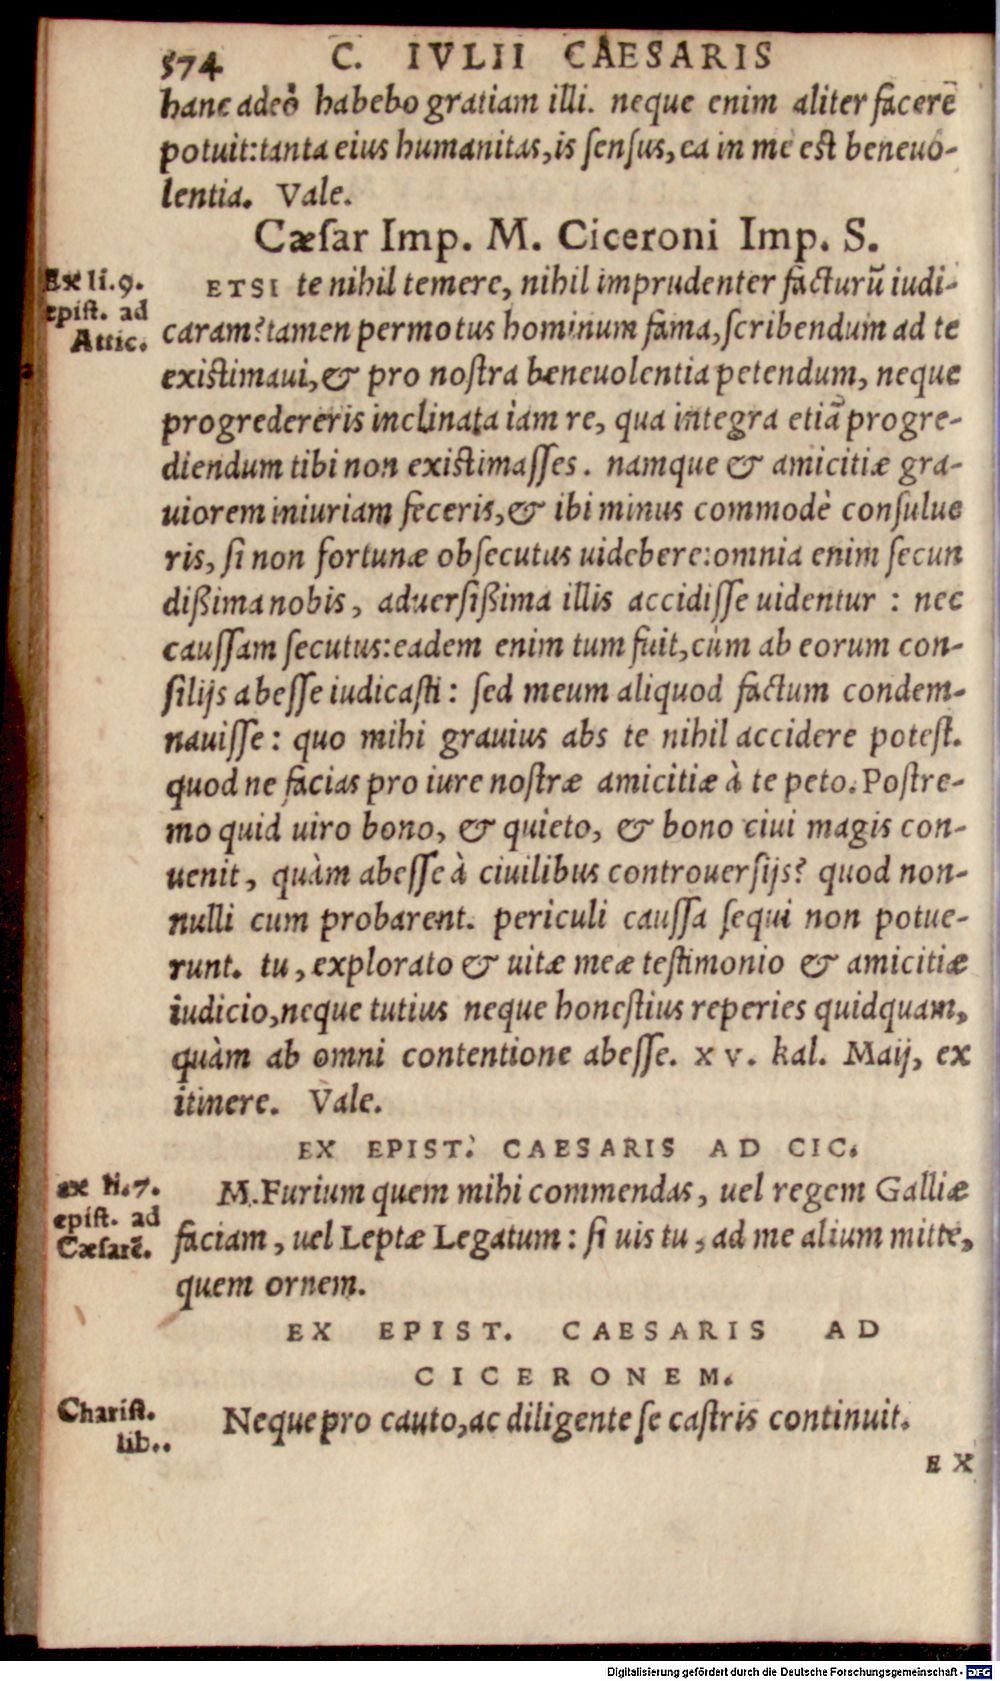 574 C. IVLII CAESARIS
hanc adeò habebo gratiam illi. neque enim aliter facerẽ
potuit:tanta eius humanitas,is ſenſus,ea in me est beneuo-
lentia. Vale.
Cæſar Imp. M. Ciceroni Imp. S.
Ex li.9.
epiſt. ad
Attic.
ETSI te nihil temere, nihil imprudenter facturũ iudi-
caram?tamen permotus hominum fama,ſcribendum ad te
existimaui,& pro noſtra beneuolentia petendum, neque
progredereris inclinata iam re, qua integra etiã progre-
diendum tibi non existimaſſes. namque & amicitiæ gra-
uiorem iniuriam feceris,& ibi minus commodè conſulue
ris, ſi non fortunæ obſecutus uidebere:omnia enim ſecun
dißima nobis, aduerſißima illis accidiſſe uidentur : nec
cauſſam ſecutus:eadem enim tum fuit,cùm ab eorum con-
ſilijs abeſſe iudicaſti : ſed meum aliquod factum condem-
nauiſſe : quo mihi grauius abs te nihil accidere poteſt.
quod ne facias pro iure noſtræ amicitiæ à te peto. Poſtre-
mo quid uiro bono, & quieto, & bono ciui magis con-
uenit, quàm abeſſe à ciuilibus controuerſijs? quod non-
nulli cum probarent. periculi cauſſa ſequi non potue-
runt. tu, explorato & uitæ meæ teſtimonio & amicitiæ
iudicio,neque tutius neque honeſtius reperies quidquam,
quàm ab omni contentione abeſſe. XV. kal. Maij, ex
itinere. Vale.
EX EPIST. CAESARIS AD CIC.
ex li.7.
epiſt. ad
Cæſarẽ.
M.Furium quem mihi commendas, uel regem Galliæ
faciam, uel Leptæ Legatum : ſi uis tu, ad me alium mitte,
quem ornem.
EX EPIST. CAESARIS AD
CICERONEM.
Chariſt.
lib..
Neque pro cauto,ac diligente ſe caſtris continuit.
EX
Digitalisierung gefördert durch die Deutsche Forschungsgemeinschaft - DFG